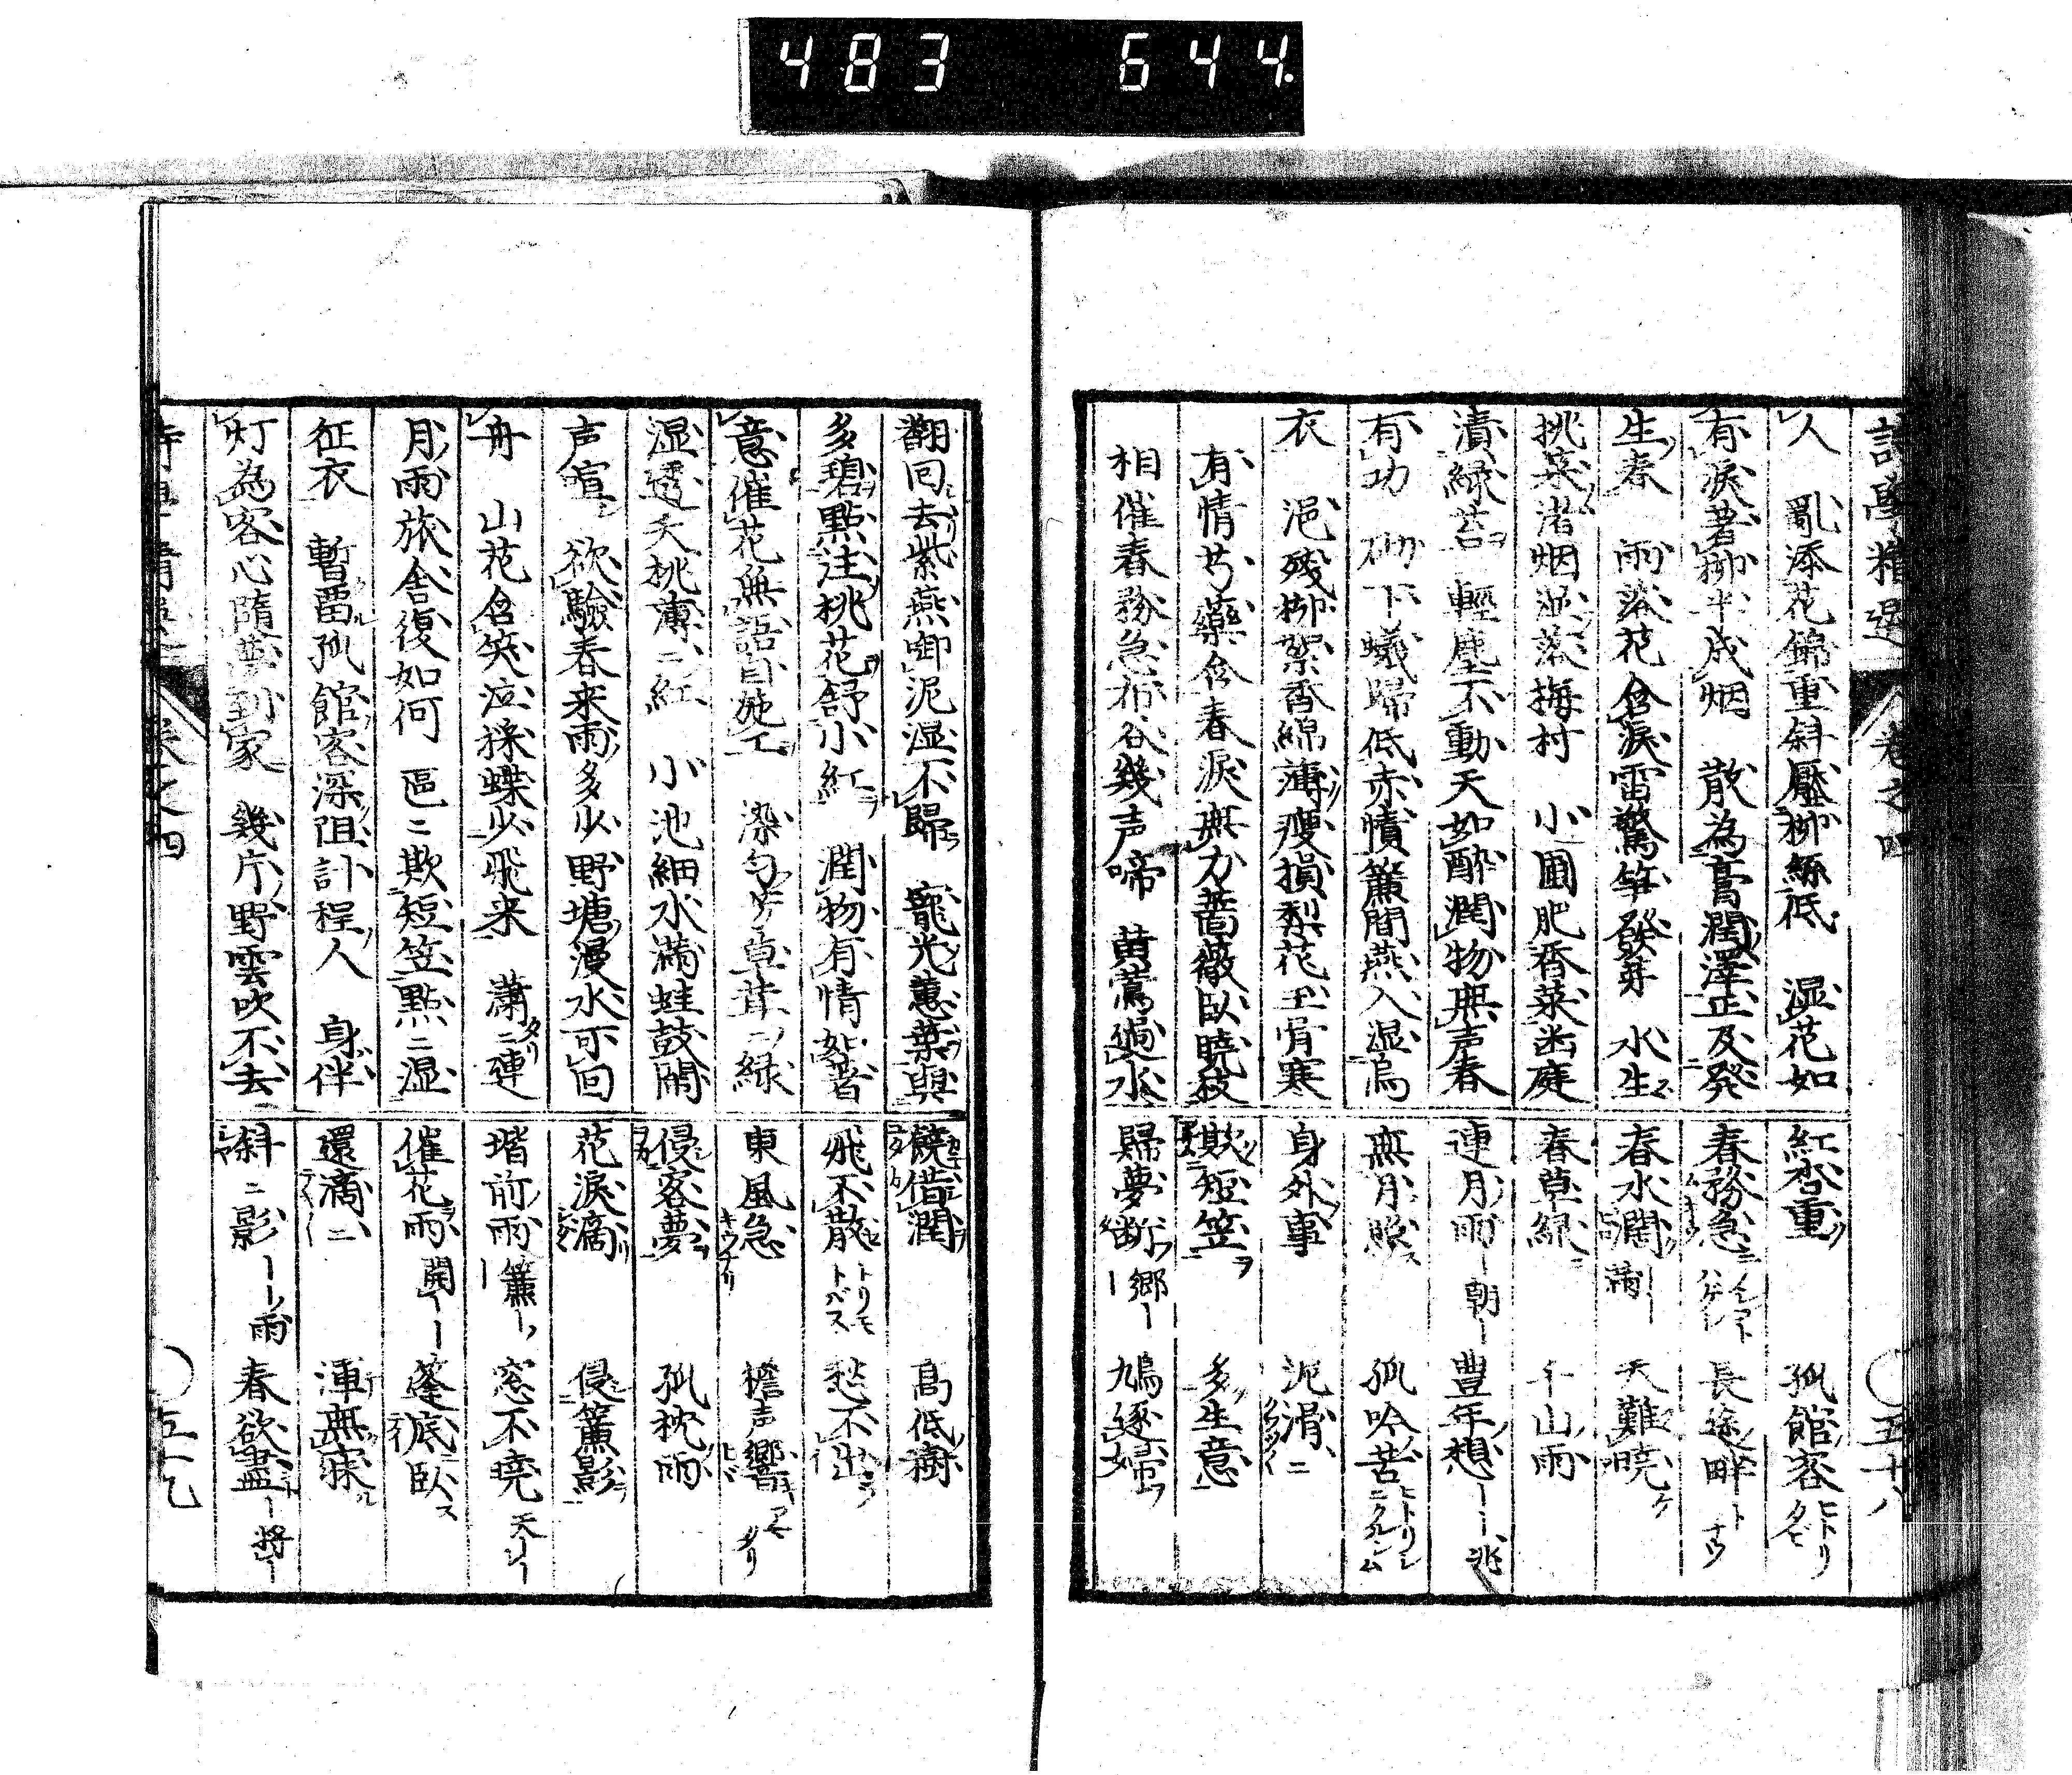 483 644.
詩學精選 卷之四 五十八
人 亂添花錦重斜壓柳絲低 湿花如
有淚著柳半成烟 散為膏潤澤正及発
生春 雨落花含淚雷驚笋發芽 水生
挑菜渚烟湿落梅村 小圃肥香菜幽庭
漬緑苔 輕塵不動天如酔潤物無声春
有功 砌下蟻歸低赤幘簾間燕入湿烏
衣 浥殘柳絮香綿薄瘦損梨花玉骨寒
有情芍藥含春淚無力薔薇臥曉枝
相催春務急布谷幾声啼 黄鶯過水
紅杏重 孤館客ヒトリタビ
春務急 長途畔
春水潤満ー 天難暁
春草緑 千山雨
連月雨ー朝ー 豊年想ーー兆
無月照 孤吟苦
身外事 泥滑ニ
欺短笠 多生意
歸夢断郷ー 鳩逐婦
翻回去紫燕啣泥湿不歸 寵光蕙葉與
多碧點注桃花舒小紅 潤物有情如著
意催花無語自施工 染匀草茸ニ緑
湿透夭桃薄ニ紅 小池細水満蛙鼓閙
声喧 欲驗春来雨多少野塘漫水可回
舟 山花含笑泣採蝶少飛来 蕭ニ連
月雨旅舎復如何 區ニ欺短笠點ニ湿
征衣 暫畱孤館客深阻計程人 身伴
灯為客心隨夢到家 幾片野雲吹不去
饒借潤 高低樹
飛不散 愁不出
東風急 檐声響
侵客夢 孤枕雨
花淚滴 侵簾影
堦前雨簾ー 窓不曉天ー
催花雨開ーー 篷底臥
還滴ニ 渾無寐
斜ニ影ーー雨 春欲盡ー将ー